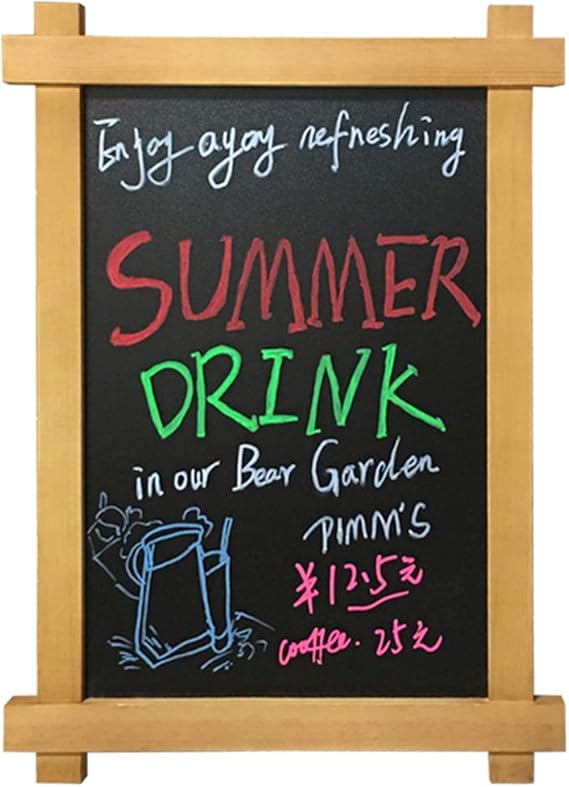 Enjoy ayoy refreshing
SUMMER
DRINK
in our Bear Garden
PIMM'S
¥12.5元
cooffee. 25元